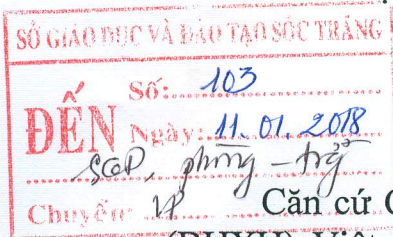 SỞ GIÁO DỤC VÀ ĐÀO TẠO SÓC TRĂNG
ĐẾN
Số: 103
Ngày: 11.01.2018
phòng
Chuyển: VP
Căn cứ